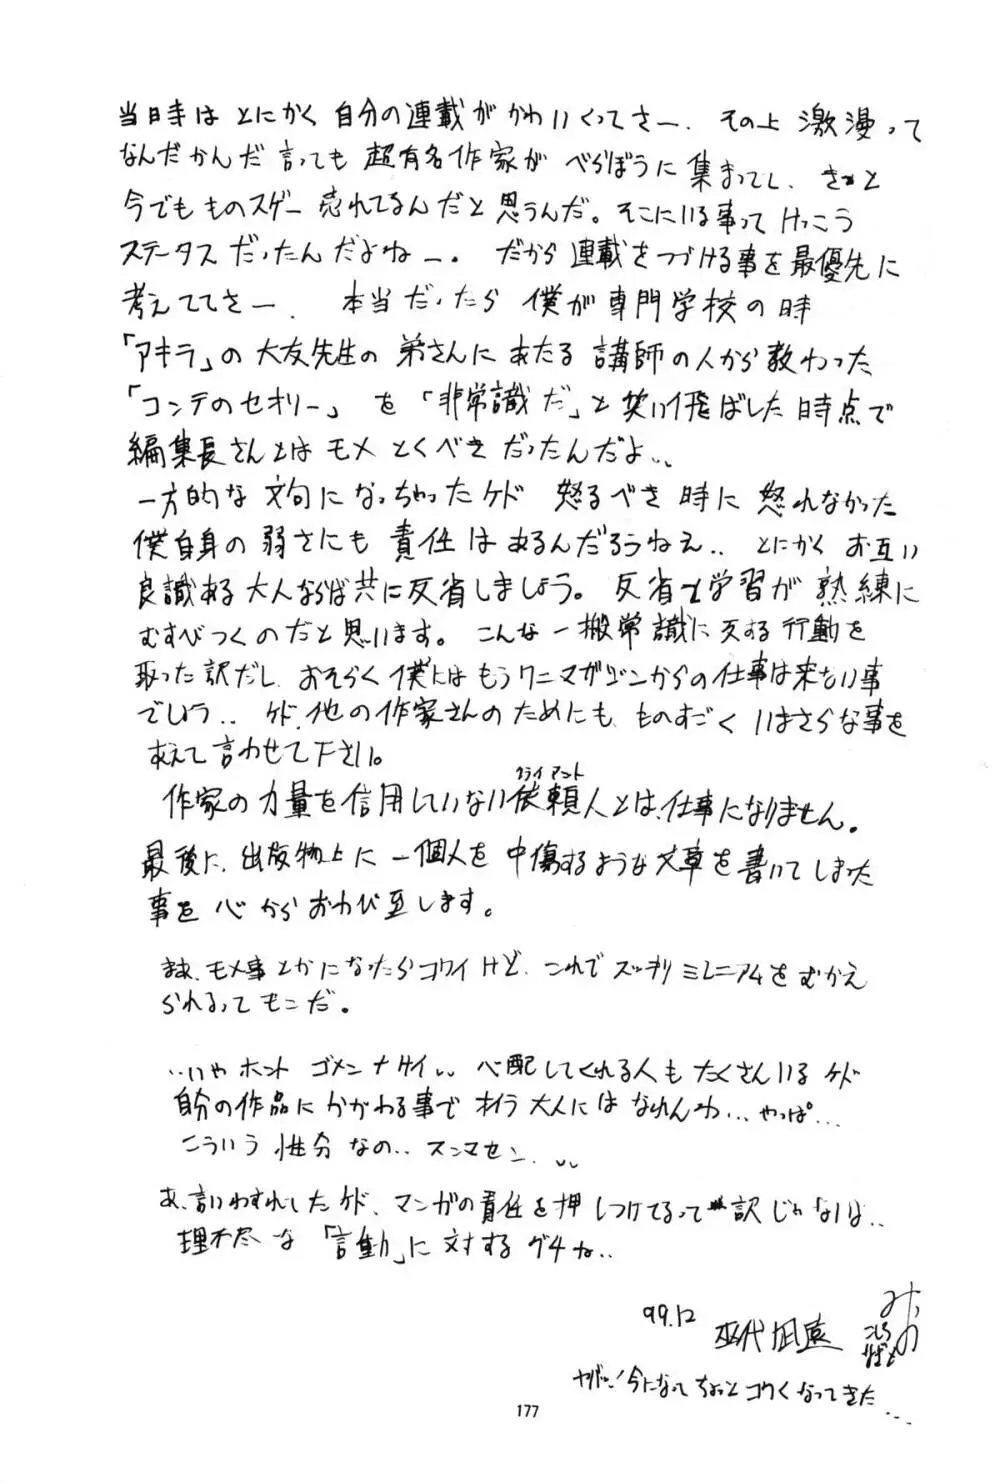 当時は とにかく 自分の連載が かわいくってさー．その上 激漫って
なんだかんだ 言っても 超有名作家が べらぼうに 集まってし、きっと
今でも ものスゲー 売れてるんだと 思うんだ。そこにいる事って けっこう
ステータス だったんだよねー．だから 連載をつづける事を 最優先に
考えててさー．本当だったら 僕が 専門学校の時
「アキラ」の 大友先生の 弟さんに あたる 講師の人から 教わった
「コンテのセオリー」を「非常識だ」と 笑い飛ばした 時点で
編集長さんとは モメ とくべき だったんだよ..
一方的な 文句に なっちゃったケド 怒るべき 時に 怒れなかった
僕自身の 弱さにも 責任は あるんだろうねえ.. とにかく お互い
良識ある 大人ならば 共に 反省しましょう。反省と学習が 熟練に
むすびつくのだと 思います。こんな 一搬常識に 反する 行動を
取った 訳だし、おそらく 僕にはもう ワニマガジンからの 仕事は来ない事
でしょう.. ケド、他の 作家さんの ためにも、ものすごく いまさらな事を
あえて 言わせて 下さい。
作家の 力量を 信用していない 依頼人とは、仕事になりません。
クライアント
最後に、出版物上に 一個人を 中傷するような 文章を 書いてしまった
事を 心から おわび 致します。
まあ、モメ事とかになったらコワイけど、これで スッキリ ミレニアムを むかえ
られるってもんだ。
..いや ホント ゴメンナサイ.. 心配してくれる人も たくさんいるケド
自分の作品に かかわる事で オイラ 大人には なれんわ... やっぱ...
こういう 性分 なの.. スンマセン...
あ、言いわすれしたケド、マンガの責任を 押しつけてるって 訳じゃないよ..
理不尽な「言動」に 対する グチね..
99.12
巫代凪遠
みの
こしろ
なぎと
ヤバッ!今になって ちょっと コワく なってきた...
177